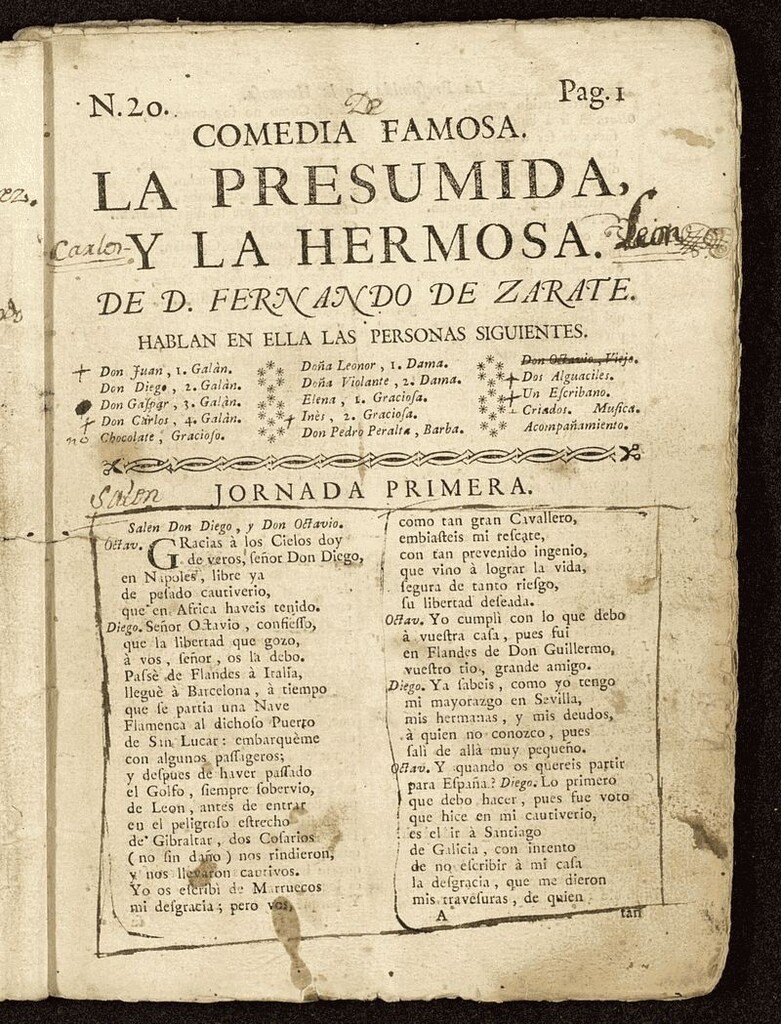 N.20.
Pag. 1
De
COMEDIA FAMOSA.
LA PRESUMIDA,
Carlos
Y LA HERMOSA.
Leon
DE D. FERNANDO DE ZARATE.
HABLAN EN ELLA LAS PERSONAS SIGUIENTES.
Don Juan, 1. Galàn.
Don Diego, 2. Galàn.
Don Gaſpar, 3. Galàn.
Don Càrlos, 4. Galàn.
no Chocolate, Gracioſo.
Doña Leonor, 1. Dama.
Doña Violante, 2. Dama.
Elena, 1. Gracioſa.
Inès, 2. Gracioſa.
Don Pedro Peralta, Barba.
Don Octavio, Viejo.
Dos Alguaciles.
Un Eſcribano.
Criados. Muſica.
Acompañamiento.
Salen
JORNADA PRIMERA.
Salen Don Diego, y Don Octavio.
Octav. GRacias à los Cielos doy
de veros, ſeñor Don Diego,
en Napoles, libre ya
de peſado cautiverio,
que en Africa haveis tenido.
Diego. Señor Octavio, confieſſo,
que la libertad que gozo,
à vos, ſeñor, os la debo.
Paſsè de Flandes à Italia,
lleguè à Barcelona, à tiempo
que ſe partia una Nave
Flamenca al dichoſo Puerto
de San Lucar: embarquème
con algunos paſſageros;
y deſpues de haver paſſado
el Golfo, ſiempre ſobervio,
de Leon, antes de entrar
en el peligroſo eſtrecho
de Gibraltar, dos Coſarios
(no ſin daño) nos rindieron,
y nos llevaron cautivos.
Yo os eſcribì de Marruecos
mi deſgracia; pero vos,
como tan gran Cavallero,
embiaſteis mi reſcate,
con tan prevenido ingenio,
que vino à lograr la vida,
ſegura de tanto rieſgo,
ſu libertad deſeada.
Octav. Yo cumplì con lo que debo
à vueſtra caſa, pues fui
en Flandes de Don Guillermo,
vueſtro tio, grande amigo.
Diego. Ya ſabeis, como yo tengo
mi mayorazgo en Sevilla,
mis hermanas, y mis deudos,
à quien no conozco, pues
ſalì de allà muy pequeño.
Octav. Y quando os quereis partir
para Eſpaña? Diego. Lo primero
que debo hacer, pues fue voto
que hice en mi cautiverio,
es el ir à Santiago
de Galicia, con intento
de no eſcribir à mi caſa
la deſgracia, que me dieron
mis traveſuras, de quien
A
tan